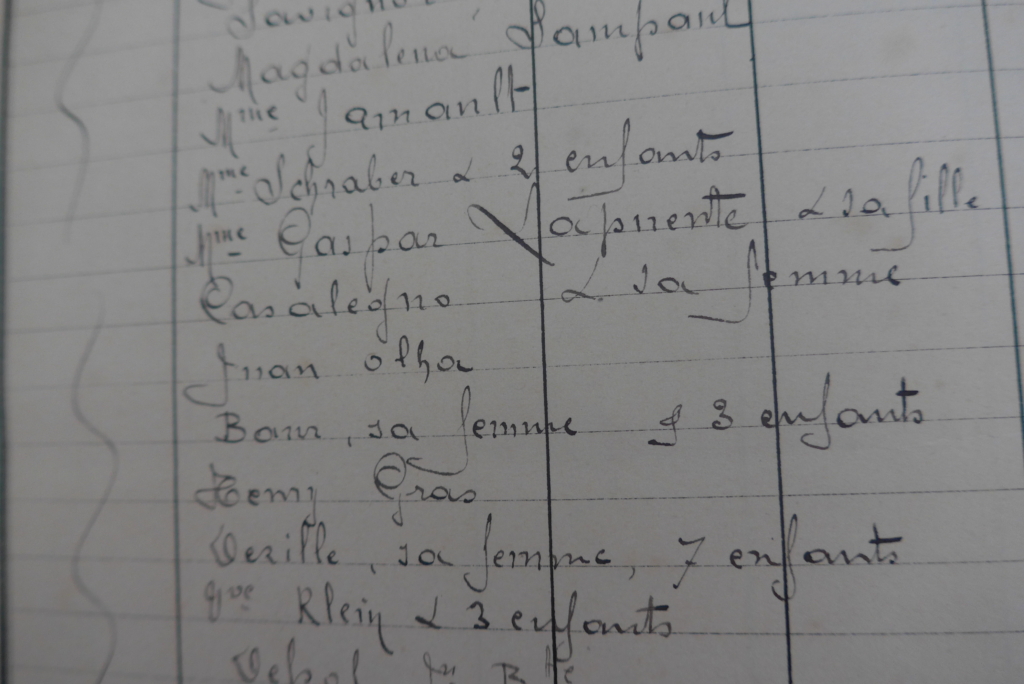 Magdalena Sampant
Mme Jamault
Mme Schraber & 2 enfants
Mme Gaspar Lapuente & sa fille
Casalegno & sa femme
Juan olha
Baur, sa femme & 3 enfants
Remy Gras
Verille, sa femme, 7 enfants
Vve Klein & 3 enfants